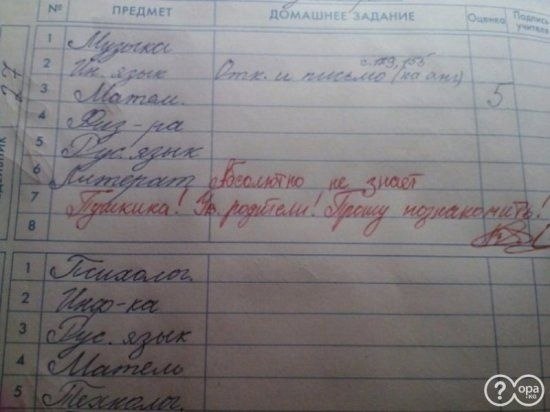 № ПРЕДМЕТ ДОМАШНЕЕ ЗАДАНИЕ Оценка Подпись учителя
27
недельник
1 Музыка
с. 119, 155
2 Ин. язык Отк. и письмо (на анг)
3 Матем. 5
4 Физ-ра
5 Рус. язык
6 Литерат Абсолютно не знает
7 Пушкина! Ув. родители! Прошу познакомить!
8
1 Психолог.
2 Инф-ка
3 Рус. язык
4 Матем
5 Технолог.
?opa.kg